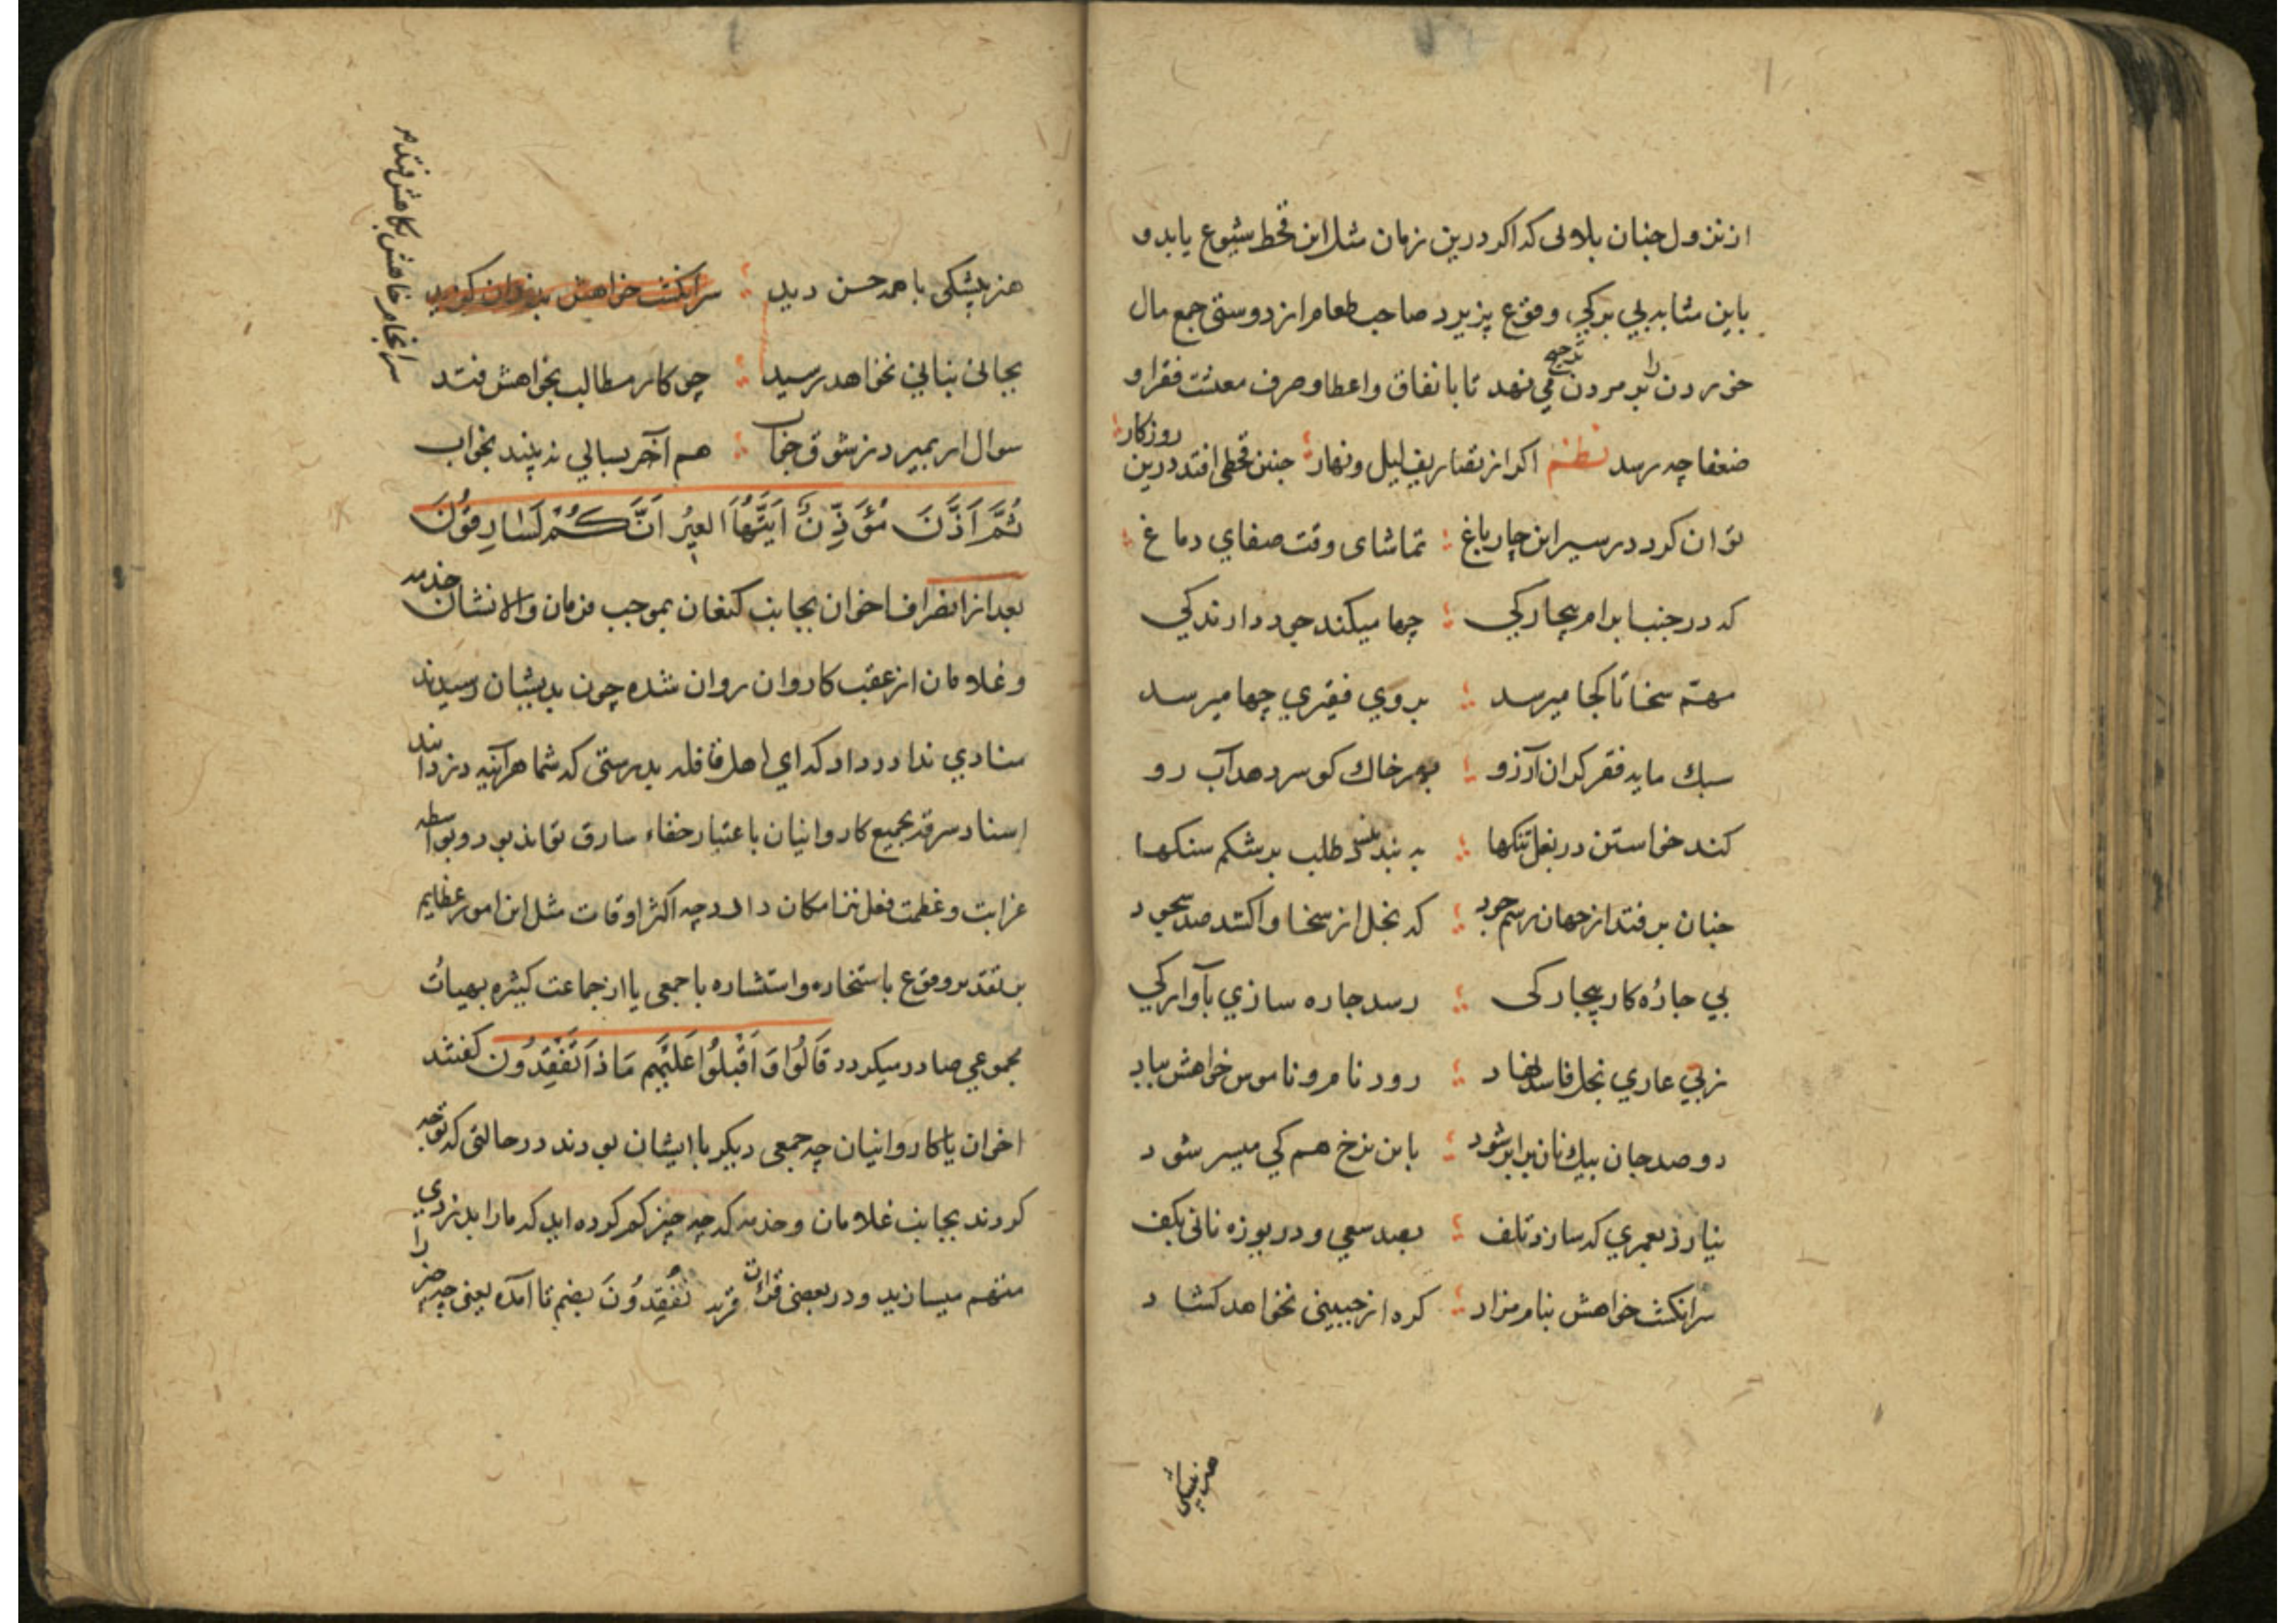 از نزول چنان بلاولی که اکر درین زمان مثل این قحط شیوع یابد و
باین مثابه بی برکی وقوع پزیرد صاحب طعام از دوستی جمع مال
خوردن را بر مردن ترجیح می نهد تا بانفاق و اعطا و صرف معشت فقرا و
ضعفا چه رسد نظم اکر از تصاریف لیل و نهار چنین قحطی افتد درین روزکار
توان کرد در سیر این چارباغ تماشای وقت صفای دماغ
که در جنب ابرام بیچارکی چها میکند جود دارندکی
مهم سخا تا کجا میرسد بروی فقیری چها میرسد
سبك مایه فقر کران آرزو بهر خاك کو سر دهد آب رو
کند خواستن در بغل تنکها به بندد طلب بر شکم سنکها
چنان برفتد از جهان رسم جود که بخل از سخا واکشد صد سجود
بی چارهٔ کار بیچارکی رسد چاره سازی بآوارکی
زبی عاری بخل فاسد نهاد رود نام و ناموس خواهش بباد
دو صد جان بیك نان برابر شود باین نرخ هم کی میسر شود
نیارد بعمری که سازد تلف بصد سعی و دریوزه نانی بکف
سرانکشت خواهش بنام مراد کره از جبینی نخواهد کشاد
هنر پیشکی
هنر پیشکی با همه حسن دید سرانکشت خواهش بدندان کزید
سرانجام خواهش بکاهش فتد
بجائی بنائی نخواهد رسید چو کار مطالب بخواهش فتد
سوال ار بمیرد ز شوق جواب هم آخر سبالی نه بیند بخواب
ثُمَّ اَذَّنَ مُؤَذِّنٌ اَيَّتُهَا العِيرُ اِنَّكُمْ لَسَارِقُونَ
بعد از انصراف اخوان بجانب کنعان بموجب فرمان والا نشان خدمه
و غلامان از عقب کاروان روان شده چون بدیشان رسیدند
منادی ندا در داد که ای اهل قافله بدرستی که شما هرآینه دزدانید
اسناد سرقه بجمیع کاروانیان باعتبار خفاء سارق تواند بود و بواسطه
غرابت و عظمت فعل نیز امکان دارد چه اکثر اوقات مثل این امور عظایم
بر تقدیر وقوع باستخاره و استشاره با جمعی یا از جماعت کثیره بهیأت
مجموعی صادر میکردد قَالُوا وَ اَقْبَلُوا عَلَيْهِم مَاذَا تَفْقِدُون کفتند
اخوان یا کاروانیان چه جمعی دیکر با ایشان بودند در حالتی که توجه
کردند بجانب غلامان و خدمه که چه چیز کم کرده اید که ما را بدزدی
متهم میسازید و در بعضی قراات قرید تُفْقِدُونَ بضم تا آمده یعنی چه چیز را